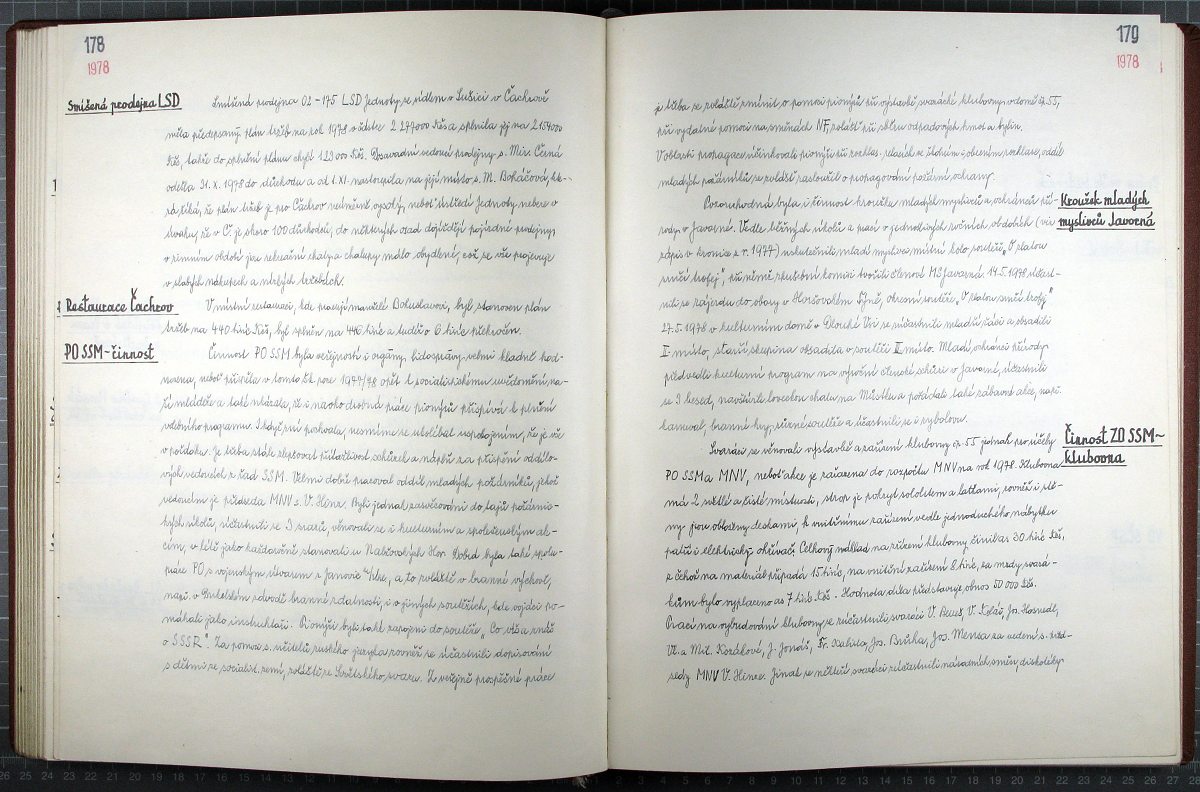 178
1978
Smíšená prodejna LSD
Smíšená prodejna 02-175 LSD Jednoty se sídlem v Sušici v Čachrově
měla předepsaný plán tržeb na rok 1978 v částce 2 277000 Kčs a splnila jej na 2154000
Kčs, takže do splnění plánu chybí 123 000 Kčs. Dosavadní vedoucí prodejny s. Mir. Černá
odešla 31. X. 1978 do důchodu a od 1. XI. nastoupila na její místo s. M. Boháčová, kte-
rá říká, že plán tržeb je pro Čachrov neúměrně vysoký, neboť ústředí Jednoty nebere v
úvahu, že v Č. je skoro 100 důchodců, do některých osad dojíždějí pojízdné prodejny,
v zimním období jsou rekreační chaty a chalupy málo obydleny, což se vše projevuje
v slabých nákupech a nízkých tržbách.
Restaurace Čachrov
V místní restauraci, kde pracují manželé Bohuslavovi, byl stanoven plán
tržeb na 440 tisíc Kčs, byl splněn na 446 tisíc a tudíž o 6 tisíc překročen.
PO SSM - činnost
Činnost PO SSM byla veřejností i orgány lidosprávy velmi kladně hod-
nocena, neboť přispěla v tomto šk. roce 1977/78 opět k socialistickému uvědomění na-
ší mládeže a také ukázala, že i naoko drobná práce pionýrů přispívá k plnění
volebního programu. I když zní pochvala, nesmíme se ukolébat uspokojením, že je vše
v pořádku. Je třeba stále zlepšovat přitažlivost schůzek a náplň za přispění oddílo-
vých vedoucích z řad SSM. Velmi dobře pracoval oddíl mladých požárníků, jehož
vedoucím je předseda MNV s. V. Hinze. Byli jednak zasvěcováni do tajů požárnic-
kých úkolů, účastnili se I srazů, věnovali se i kulturním a společenským ak-
cím, v létě jako každoročně stanovali u Nalžovských Hor. Dobrá byla také spolu-
práce PO s vojenským útvarem z Janovic n/Úhl., a to zvláště v branné výchově,
např. v Dukelském závodě branné zdatnosti, i v jiných soutěžích, kde vojáci po-
máhali jako instruktoři. Pionýři byli také zapojeni do soutěže „Co víš a znáš
o SSSR". Za pomoci s. učitelů ruského jazyka rovněž se účastnili dopisování
s dětmi ze socialist. zemí, zvláště ze Sovětského svazu. Z veřejně prospěšné práce
179
1978
je třeba se zvláště zmínit o pomoci pionýrů při výstavbě svazácké klubovny v domě čp. 55,
při vydatné pomoci na směnách NF, zvlášť při sběru odpadových hmot a bylin.
V oblasti propagace účinkovali pionýři při rozhlas. relacích ve školním i obecním rozhlase, oddíl
mladých požárníků se zvlášť zasloužil o propagování požární ochrany.
Kroužek mladých
myslivců Javorná
Pozoruhodná byla i činnost kroužku mladých myslivců a ochránců pří-
rody v Javorné. Vedle běžných úkolů a prací v jednotlivých ročních obdobích (viz
zápis v kronice z r. 1977) uskutečnili mladí myslivci místní kolo soutěže „O zlatou
srnčí trofej", při němž zkušební komisi tvořili členové MS Javorná. 14. 5. 1978 účast-
nili se zájezdu do obory v Horšovském Týně, okresní soutěže „O zlatou srnčí trofej"
27. 5. 1978 v kulturním domě v Dlouhé Vsi se zúčastnili mladší žáci a obsadili
I. místo, starší skupina obsadila v soutěži II. místo. Mladí ochránci přírody
předvedli kulturní program na výroční členské schůzi v Javorné, účastnili
se I besed, navštívili loveckou chatu na Můstku a pořádali také zábavné akce, např.
karneval, branné hry, různé soutěže a účastnili se i rybolovu.
Činnost ZO SSM -
klubovna
Svazáci se věnovali výstavbě a zařízení klubovny čp. 55 jednak pro účely
PO SSM a MNV, neboť akce je zařazena do rozpočtu MNV na rok 1978. Klubovna
má 2 světlé a čisté místnosti, strop je pokryt sololitem a laťkami, rovněž i stě-
ny jsou obloženy deskami. K vnitřnímu zařízení vedle jednoduchého nábytku
patří i elektrický ohřívač. Celkový náklad na zřízení klubovny činil as 30 tisíc Kčs,
z čehož na materiál připadá 15 tisíc, na vnitřní zařízení 8 tisíc, za mzdy svazá-
kům bylo vyplaceno as 7 tisíc Kčs. Hodnota díla představuje obnos 50 000 Kčs.
Prací na vybudování klubovny se zúčastnili svazáci V. Beneš, V. Kolář, Jos. Hosnedl,
Vl. a Mil. Korálové, J. Jonáš, Fr. Kabista, Jos. Bruha, Jos. Mensa za vedení s. před-
sedy MNV V. Hinze. Jinak se někteří svazáci zúčastnili násadních směn, diskotéky